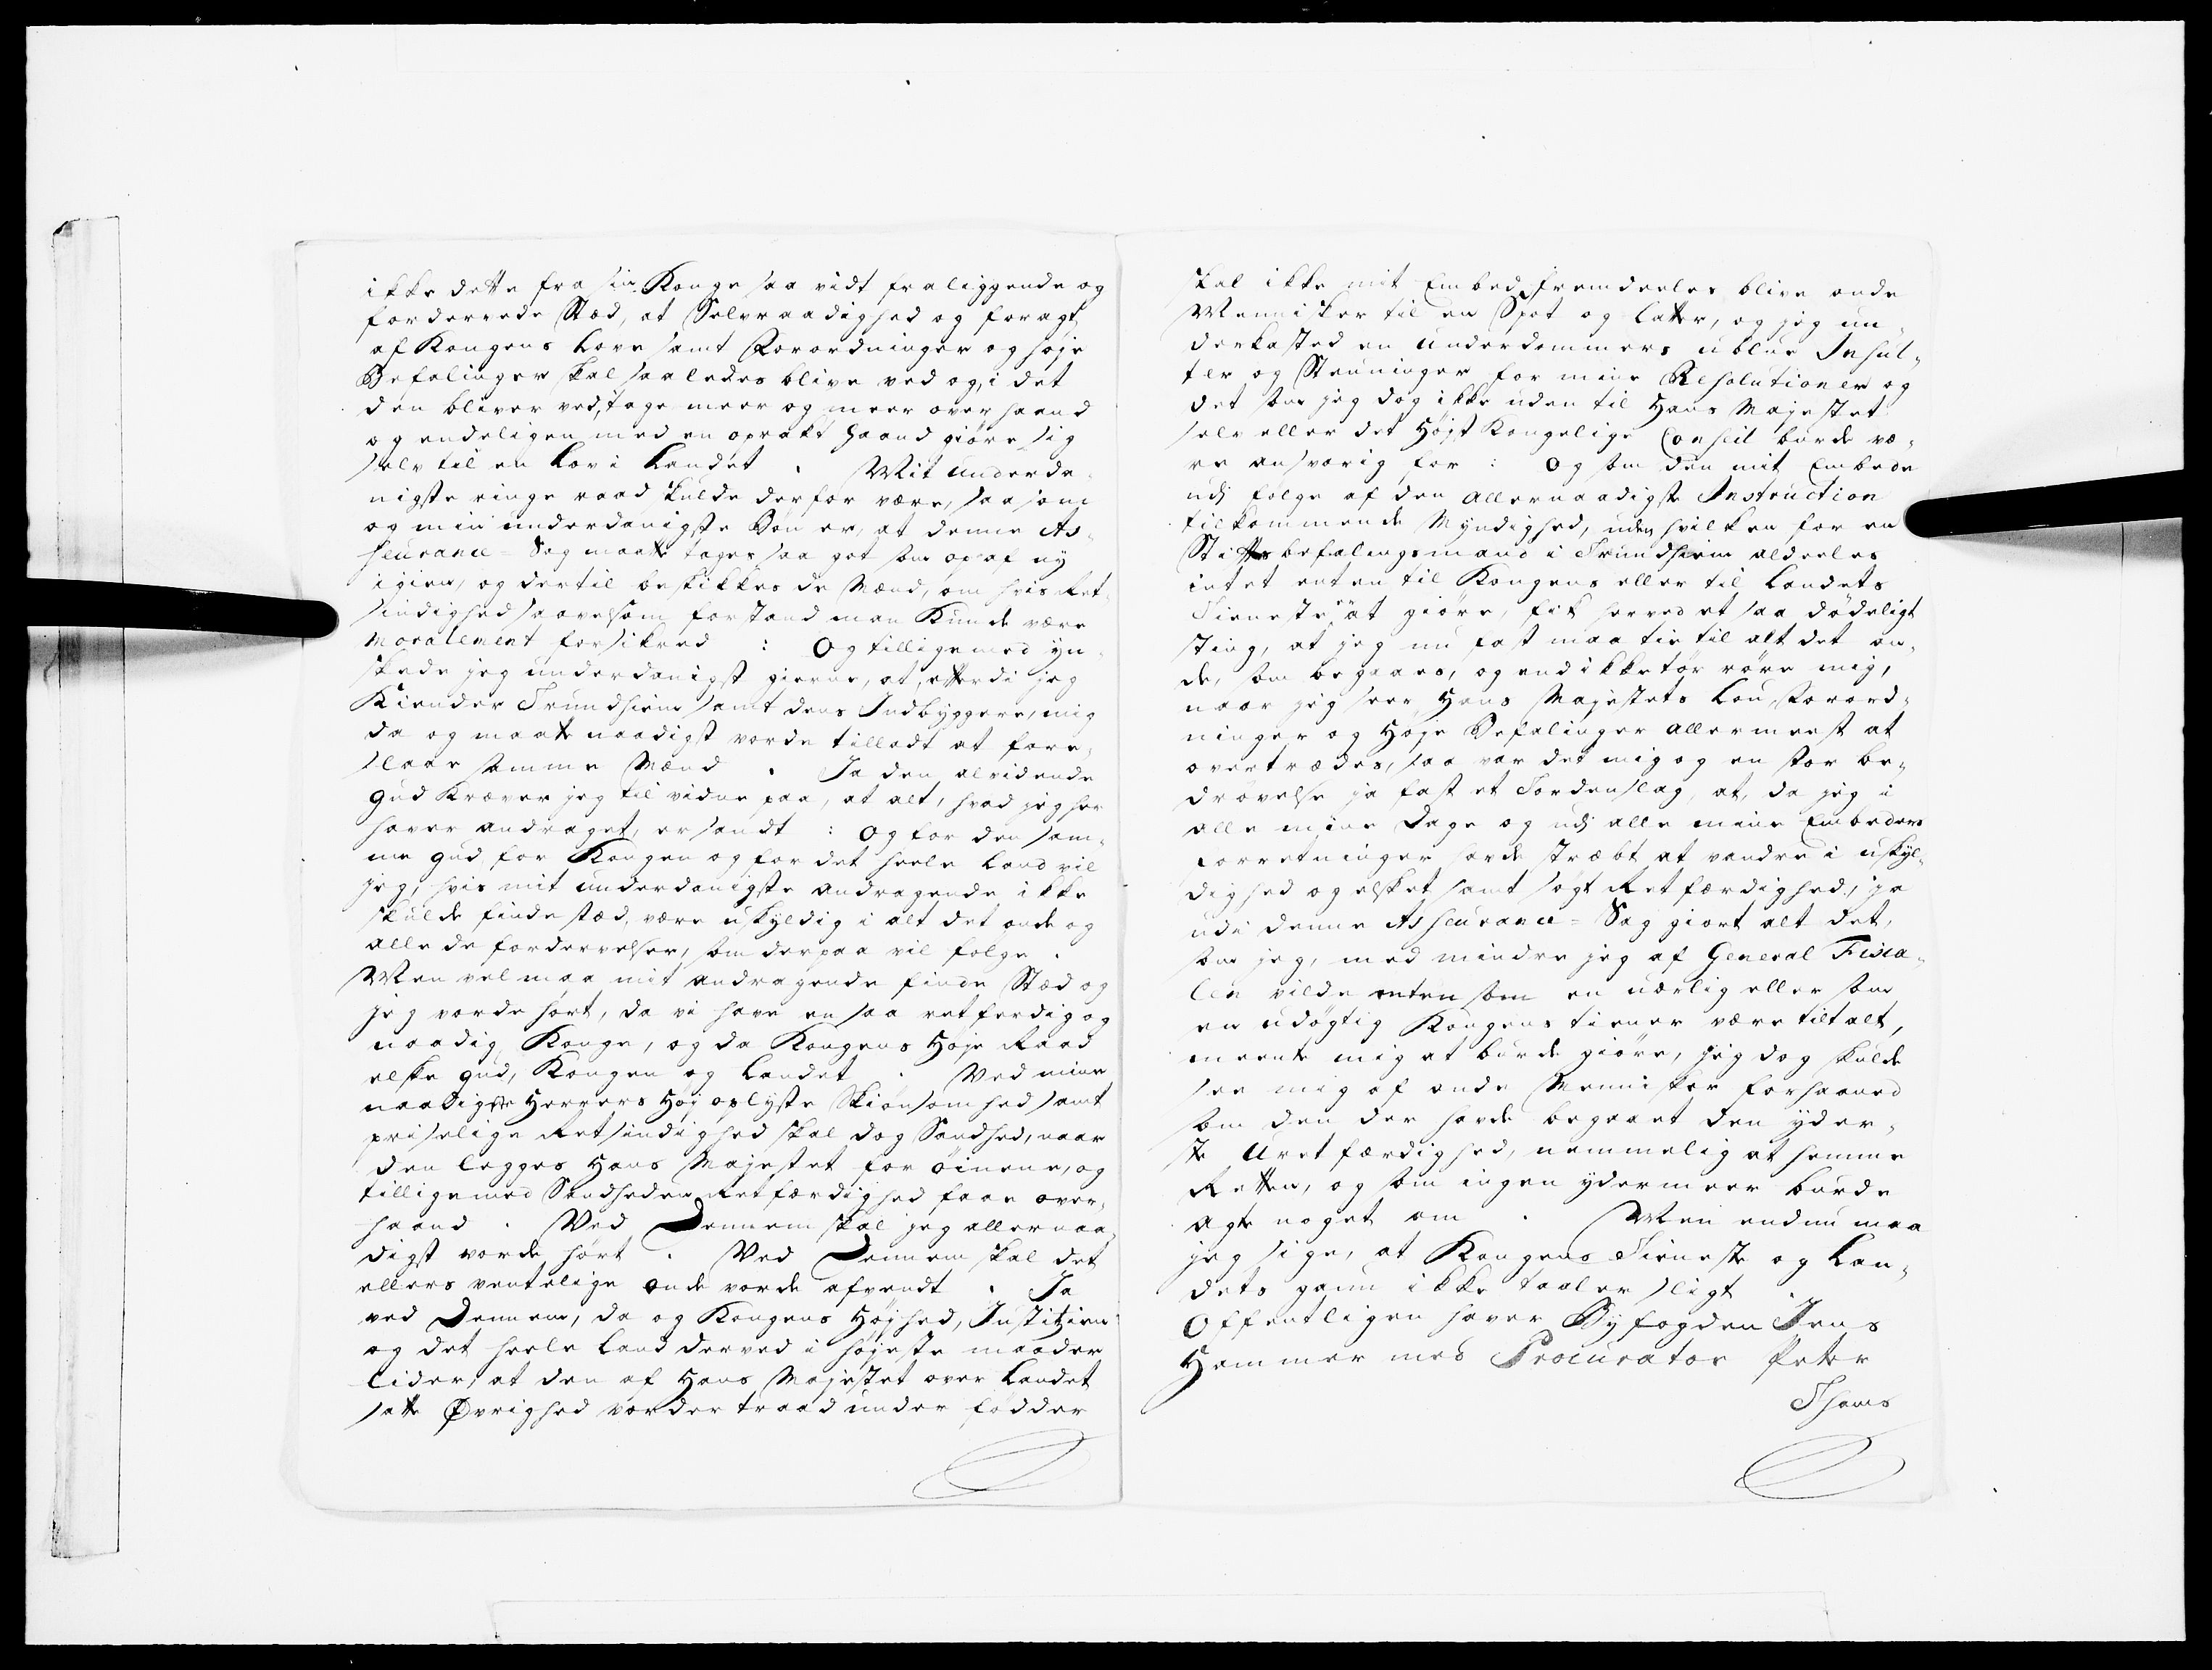 ikke dette fra sin Konge saa vidt fraliggende og
fordervede Stæd, at Selvraadighed og foragt
af Kongens Love samt Forordninger og høje
Befalinger skal saaledes blive ved og, i det
den bliver ved, tage meer og meer over haand
og endeligen med en oprakt Haand giöre sig
selv til en Lov i Landet . Mit underda-
nigste ringe raad skulde derfor være, saasom
og min underdanigste Bön er, at denne As-
seurance-Sag maatte tages saa got som op af ny
igien, og dertil beskikkes de Mænd, om hvis Ret-
sindighed saavelsom forstand man Kunde være
moralement forsikred : Og tilligemed yn-
skede jeg underdanigst gierne, at, efterdi jeg
Kiender Trundhiem samt dens Indbyggere, mig
da og maatte naadigst vorde tilladt at fore-
slaae samme Mænd . Ja den alvidende
Gud Kræver jeg til vidne paa, at alt, hvad jeg her
haver andraget, er sandt : Og for den sam-
me Gud, for Kongen og for det heele Land vil
jeg, hvis mit underdanigste andragende ikke
skulde finde stæd, være uskyldig i alt det onde og
alle de fordervelser, som derpaa vil følge .
Men vel maa mit andragende finde Stæd og
jeg vorde hört, da vi have en saa retferdig og
naadig Konge, og da Kongens Høje Raad
elske Gud, Kongen og Landet . Ved mine
naadigste Herrers Høj oplyste Skiönsomhed samt
priselige Retsindighed skal dog Sandhed, naar
den legges Hans Majestet for öinene, og
tilligemed Sandheden Retfærdighed faae over-
haand . Ved Dennem skal jeg allernaa-
digst vorde hört . Ved Dennem skal det
ellers ventelige onde vorde afvendt . Ja
ved Dennem, da og Kongens Höjhed, Justitzien
og det heele Land derved i højeste maader
lider, at den af Hans Majestet over Landet
satte Øvrighed vorder traad under födder
skal ikke mit Embed fremdeeles blive onde
Mennisker til en Spot og Latter, og jeg un-
derkasted en underdommers ublue Insul-
ter og Stevninger for mine Resolutioner og
det som jeg dog ikke uden til Hans Majestet
selv eller det Højst Kongelige Conseil burde væ-
re ansvarig for : Og som den mit Embede
udj følge af den allernaadigste Instruction
tilkommende Myndighed, uden hvilken for en
Stiftsbefalingsmand i Trundhiem aldeeles
intet enten til Kongens eller til Landets
Tieneste er at giöre, fik herved et saa dödeligt
sting, at jeg nu fast maa tie til alt det on-
de, som begaaes, og end ikke tör röre mig,
naar jeg seer Hans Majestets Lov, Forord-
ninger og Høje Befalinger allermeest at
overtrædes, saa var det mig og en stor be-
drøvelse ja fast et Tordenslag, at, da jeg i
alle mine Dage og udj alle mine Embeders
forretninger havde stræbt at vandre i uskyl-
dighed og elsket samt søgt Retfærdighed, ja
udi denne Asseurance-Sag giort alt det,
som jeg, med mindre jeg af General Fisca-
len vilde enten som en uærlig eller som
en udögtig Kongens tiener være tiltalt,
meente mig at burde giöre, jeg dog skulde
see mig af onde Mennisker forhaaned
som den der havde begaaet den yder-
ste Uretfærdighed, nemmelig at hemme
Retten, og som ingen ydermeer burde
agte noget om . Men endnu maa
jeg sige, at Kongens Tieneste og Lan-
dets gavn ikke taaler sligt .
Offentligen haver Byfogden Jens
Hammer med Procurator Peter
Thams